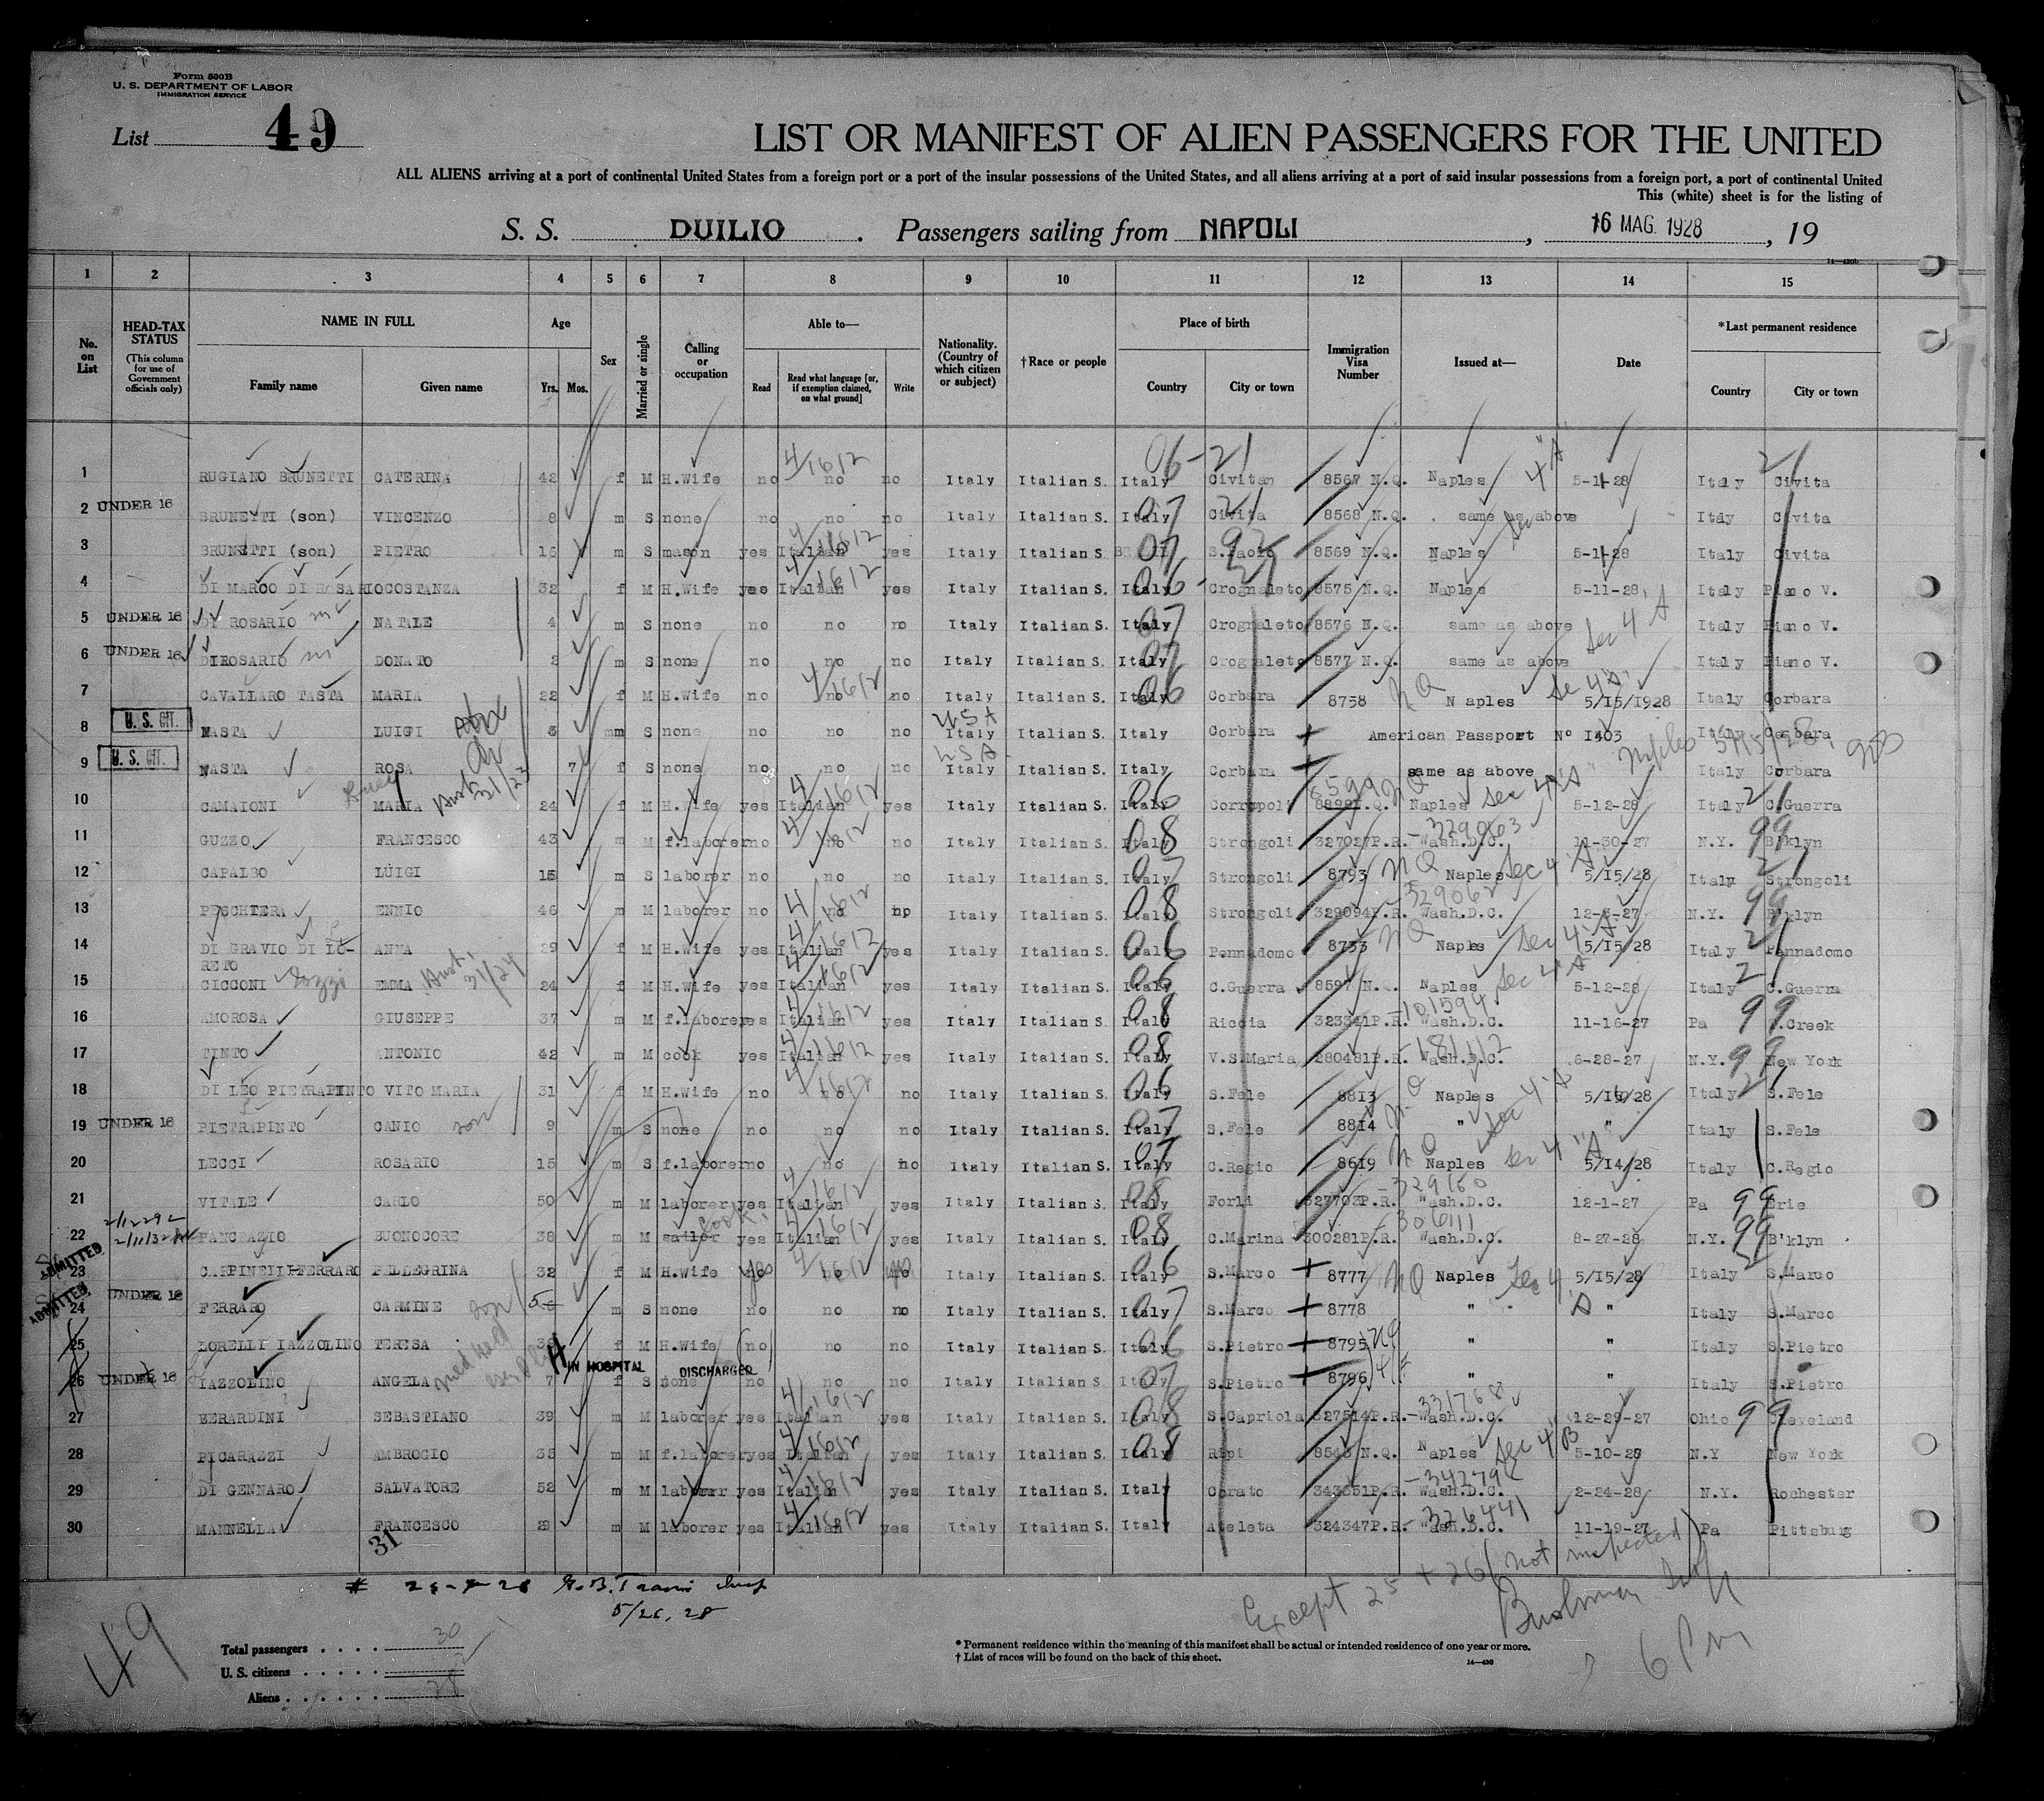 Form 500B
U. S. DEPARTMENT OF LABOR
IMMIGRATION SERVICE
List 49
LIST OR MANIFEST OF ALIEN PASSENGERS FOR THE UNITED
ALL ALIENS arriving at a port of continental United States from a foreign port or a port of the insular possessions of the United States, and all aliens arriving at a port of said insular possessions from a foreign port, a port of continental United
This (white) sheet is for the listing of
S. S. DUILIO. Passengers sailing from NAPOLI, 16 MAG. 1928, 19
1 2 3 4 5 6 7 8 9 10 11 12 13 14 15
No. on List
HEAD-TAX STATUS (This column for use of Government officials only)
NAME IN FULL Family name Given name
Age Yrs. Mos.
Sex
Married or single
Calling or occupation
Able to— Read Read what language [or, if exemption claimed, on what ground] Write
Nationality. (Country of which citizen or subject)
†Race or people
Place of birth Country City or town
Immigration Visa Number
Issued at—
Date
*Last permanent residence Country City or town
1 RUGIANO BRUNETTI CATERINA 42 f M H.Wife no no no Italy Italian S. Italy Civitan 8567 N.Q. Naples 5-1-28 Italy Civita
2 UNDER 16 BRUNETTI (son) VINCENZO 8 m S none no no no Italy Italian S. Italy Civita 8568 N.Q. same as above Italy Civita
3 BRUNETTI (son) PIETRO 16 m S mason yes Italian yes Italy Italian S S.Paolo 8569 N.Q. Naples 5-1-28 Italy Civita
4 DI MARCO DI ROSARIO COSTANZA 32 f M H.Wife yes Italian yes Italy Italian S. Italy Crognaleto 8575 N.Q. Naples 5-11-28 Italy Piano V.
5 UNDER 16 DI ROSARIO NATALE 4 m S none no no no Italy Italian S. Italy Crognaleto 8576 N.Q. same as above Italy Piano V.
6 UNDER 16 DIROSARIO DONATO 2 m S none no no no Italy Italian S. Italy Crognaleto 8577 N.Q. same as above Italy Piano V.
7 CAVALLARO TASTA MARIA 22 f M H.Wife no no no Italy Italian S. Italy Corbara 8758 NQ Naples 5/15/1928 Italy Corbara
8 U. S. CIT. NASTA LUIGI 3 m S none no no no USA Italy Italian S. Italy Corbara American Passport Nº 1403 Italy Corbara
9 U. S. CIT. NASTA ROSA 7 f S none no no no USA Italy Italian S. Italy Corbara same as above Italy Corbara
10 CAMAIONI MARIA 24 f M H.Wife yes Italian yes Italy Italian S. Italy Corropoli 8599 NQ Naples 5-12-28 Italy C.Guerra
11 GUZZO FRANCESCO 43 m M f.laborer no no no Italy Italian S. Italy Strongoli 327027P.R. Wash.D.C. 11-30-27 N.Y. B'klyn
12 CAPALBO LUIGI 15 m S laborer no no no Italy Italian S. Italy Strongoli 8793 NQ Naples 5/15/28 Italy Strongoli
13 PESCHIERA ENNIO 46 m M laborer no no no Italy Italian S. Italy Strongoli 329094P.R. Wash.D.C. N.Y. B'klyn
14 DI GRAVIO DI LO-RETO ANNA 29 f M H.Wife yes Italian yes Italy Italian S. Italy Pennadomo 8733 NQ Naples 5/15/28 Italy Pennadomo
15 CICCONI EMMA 24 f M H.Wife yes Italian yes Italy Italian S. Italy C.Guerra 8597 N.Q. Naples 5-12-28 Italy C.Guerra
16 AMOROSA GIUSEPPE 37 m M f.laborer yes Italian yes Italy Italian S. Italy Riccia 323341P.R. Wash.D.C. 11-16-27 Pa Creek
17 TINTO ANTONIO 42 m M cook yes Italian yes Italy Italian S. Italy V.S.Maria 280481P.R. Wash.D.C. 6-28-27 N.Y. New York
18 DI LEO PIETRAPINTO VITO MARIA 31 f M H.Wife no no no Italy Italian S. Italy S.Fele 8813 Naples 5/16/28 Italy S.Fele
19 UNDER 16 PIETRAPINTO CANIO son 9 m S none no no no Italy Italian S. Italy S.Fele 8814 " " Italy S.Fele
20 LECCI ROSARIO 15 m S f.laborer no no no Italy Italian S. Italy C.Regio 8619 NQ Naples 5/14/28 Italy C.Regio
21 VITALE CARLO 50 m M laborer yes Italian yes Italy Italian S. Italy Forli 327703P.R. Wash.D.C. 12-1-27 Pa Erie
22 PANCRAZIO BUONOCORE 38 m M sailor cook yes Italian yes Italy Italian S. Italy C.Marina 300281P.R. 306111 Wash.D.C. 8-27-28 N.Y. B'klyn
23 ADMITTED CARPINELLI-FERRARO PELLEGRINA 32 f M H.Wife yes no Italy Italian S. Italy S.Marco 8777 NQ Naples 5/15/28 Italy S.Marco
24 ADMITTED UNDER 16 FERRARO CARMINE son 5 m S none no no no Italy Italian S. Italy S.Marco 8778 " " Italy S.Marco
25 LORELLI IAZZOLINO TERESA f M H.Wife no no no Italy Italian S. Italy S.Pietro 8795 NQ " " Italy S.Pietro
IN HOSPITAL DISCHARGED
26 UNDER 16 IAZZOLINO ANGELA 7 f S none no no no Italy Italian S. Italy S.Pietro 8796 " " Italy S.Pietro
27 BERARDINI SEBASTIANO 39 m M laborer yes Italian yes Italy Italian S. Italy S.Capriola 327514P.R. 331768 Wash.D.C. 12-29-27 Ohio Cleveland
28 PICARAZZI AMBROGIO 35 m M f.laborer yes Italian yes Italy Italian S. Italy Ripi 8543 N.Q. Naples Sec 4 B 5-10-28 N.Y New York
29 DI GENNARO SALVATORE 52 m M laborer yes Italian yes Italy Italian S. Italy Corato 343351P.R. Wash.D.C. 2-24-28 N.Y. Rochester
30 MANNELLA FRANCESCO 29 m M laborer yes Italian yes Italy Italian S. Italy Ateleta 324347P.R. 326441 Wash.D.C. 11-19-27 Pa Pittsburg
31
5/26, 28
Except 25 + 26 (not inspected)
6 PM
49
Total passengers . . . . 30
U. S. citizens . . . . . 2
Aliens . . . . . . 28
* Permanent residence within the meaning of this manifest shall be actual or intended residence of one year or more.
† List of races will be found on the back of this sheet.
14—430